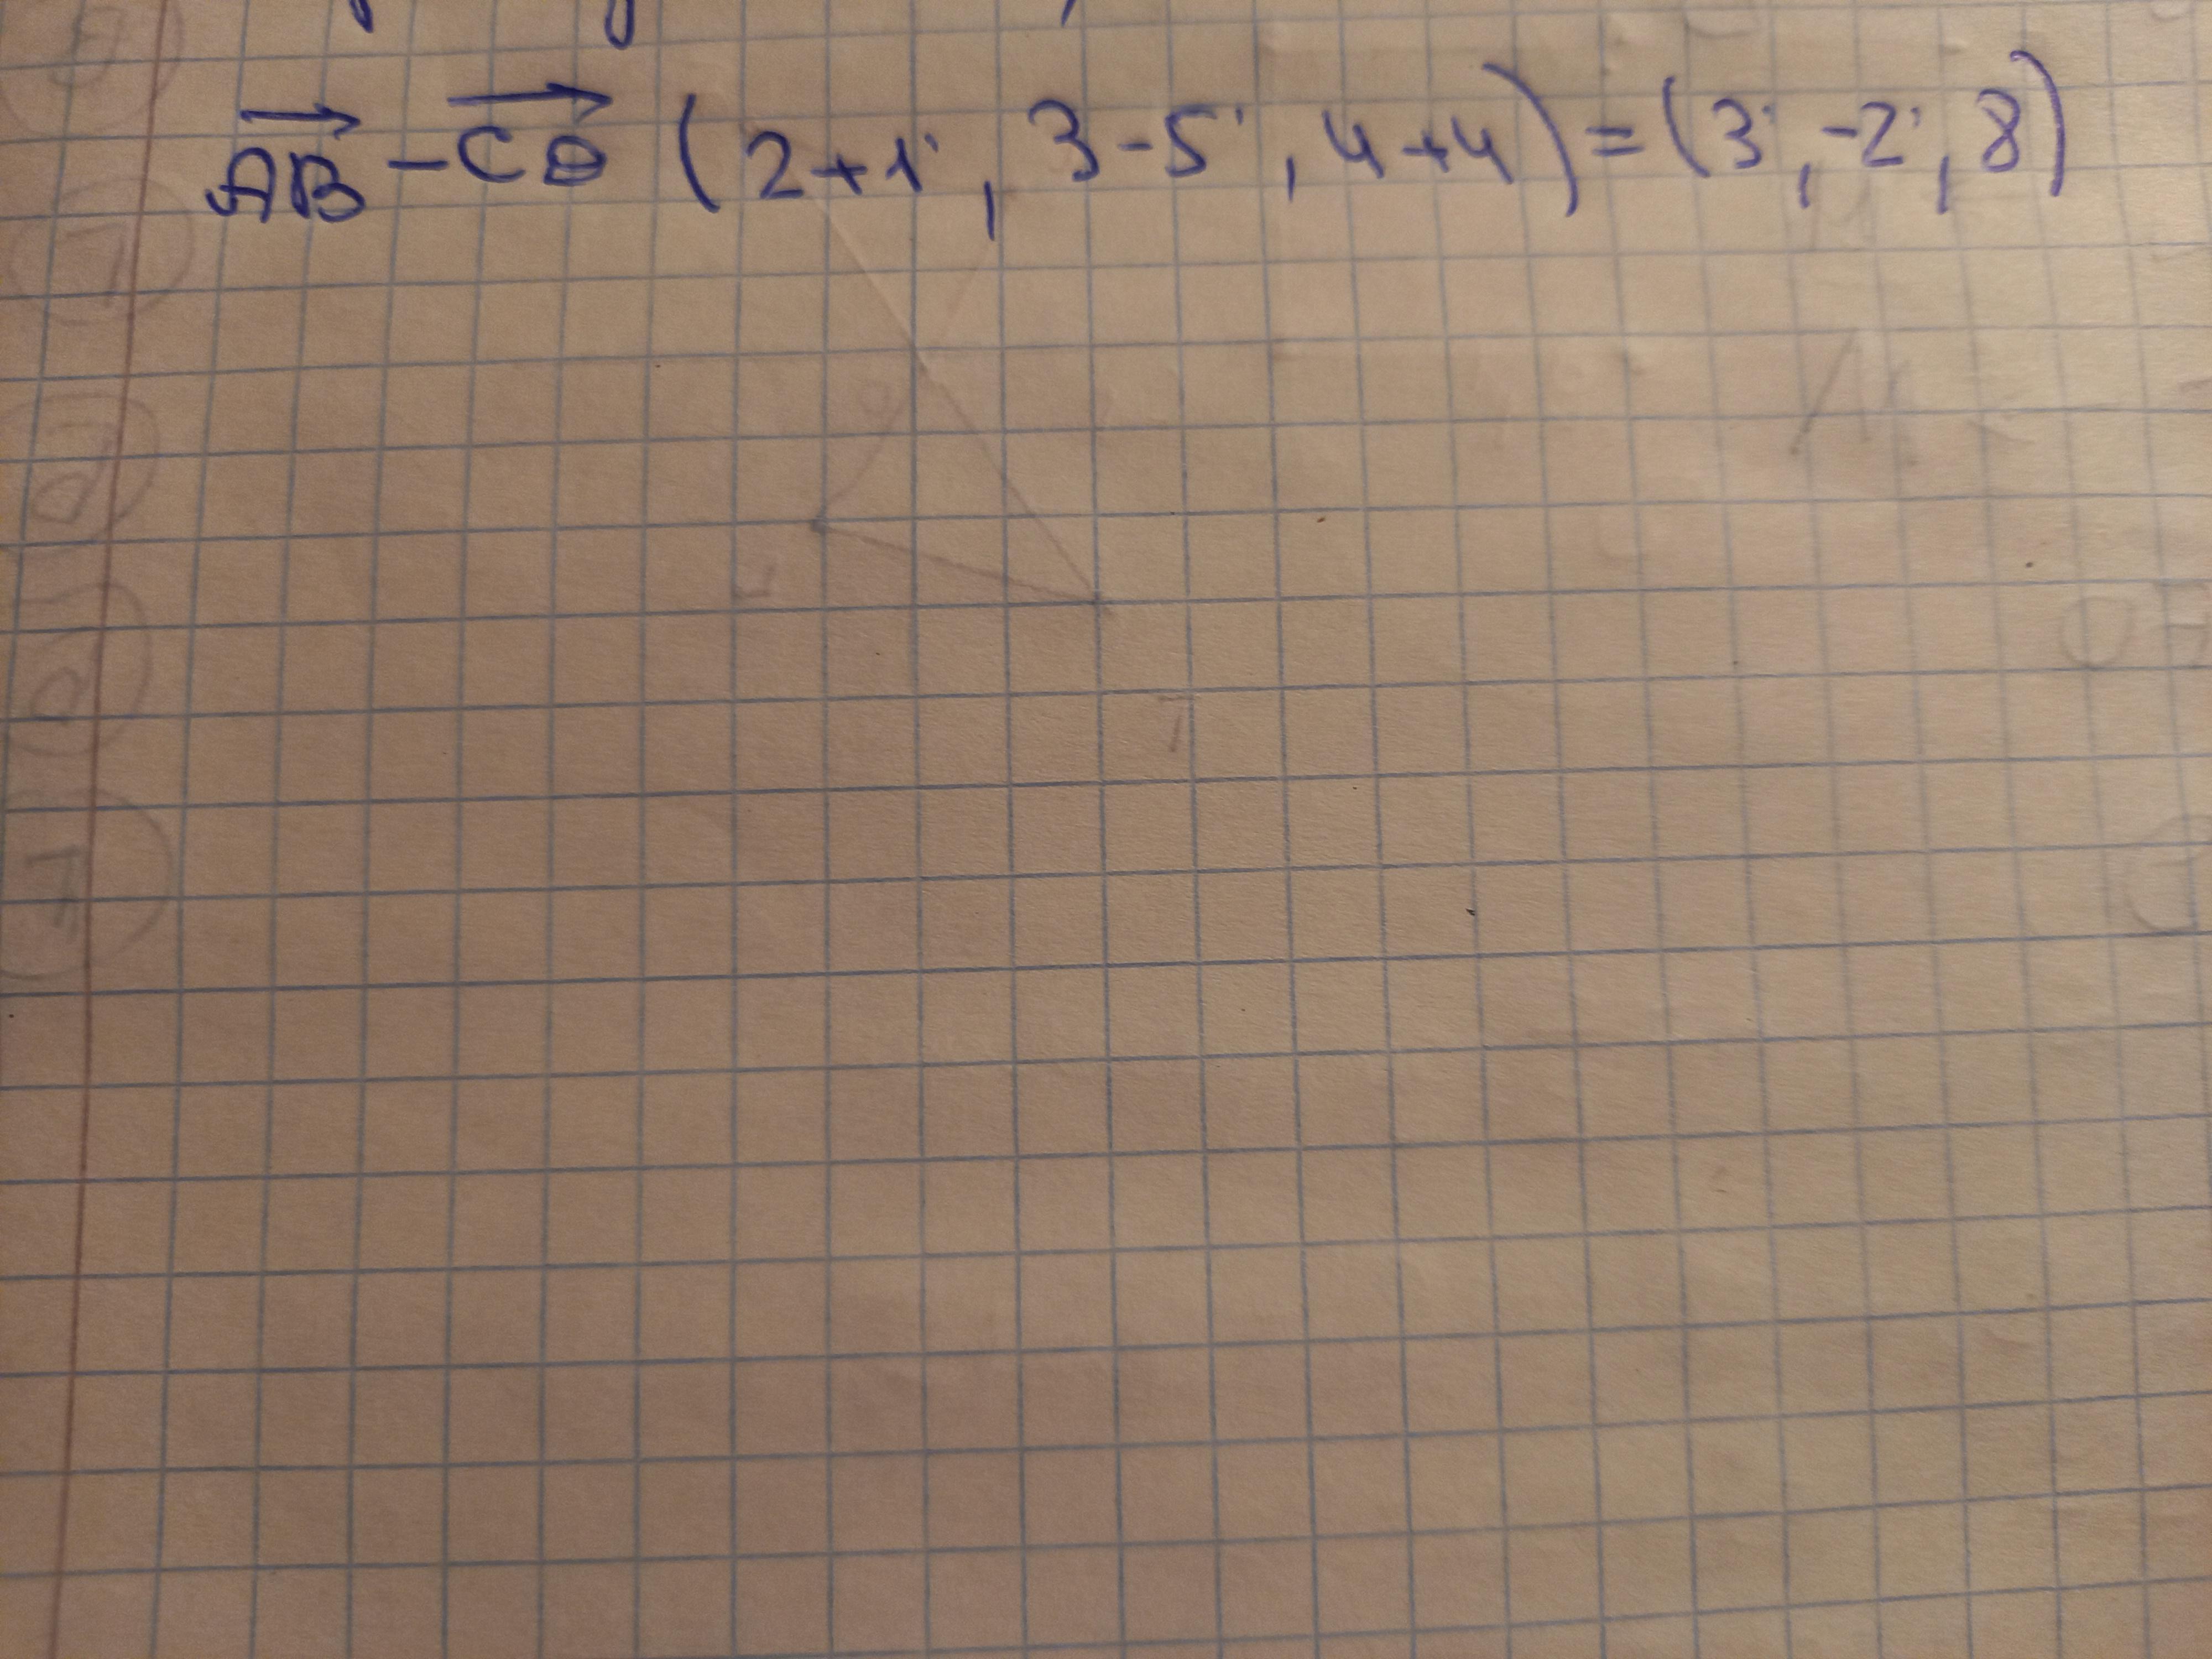 AB - CD (2+1; 3-5; 4+4) = (3; -2; 8)